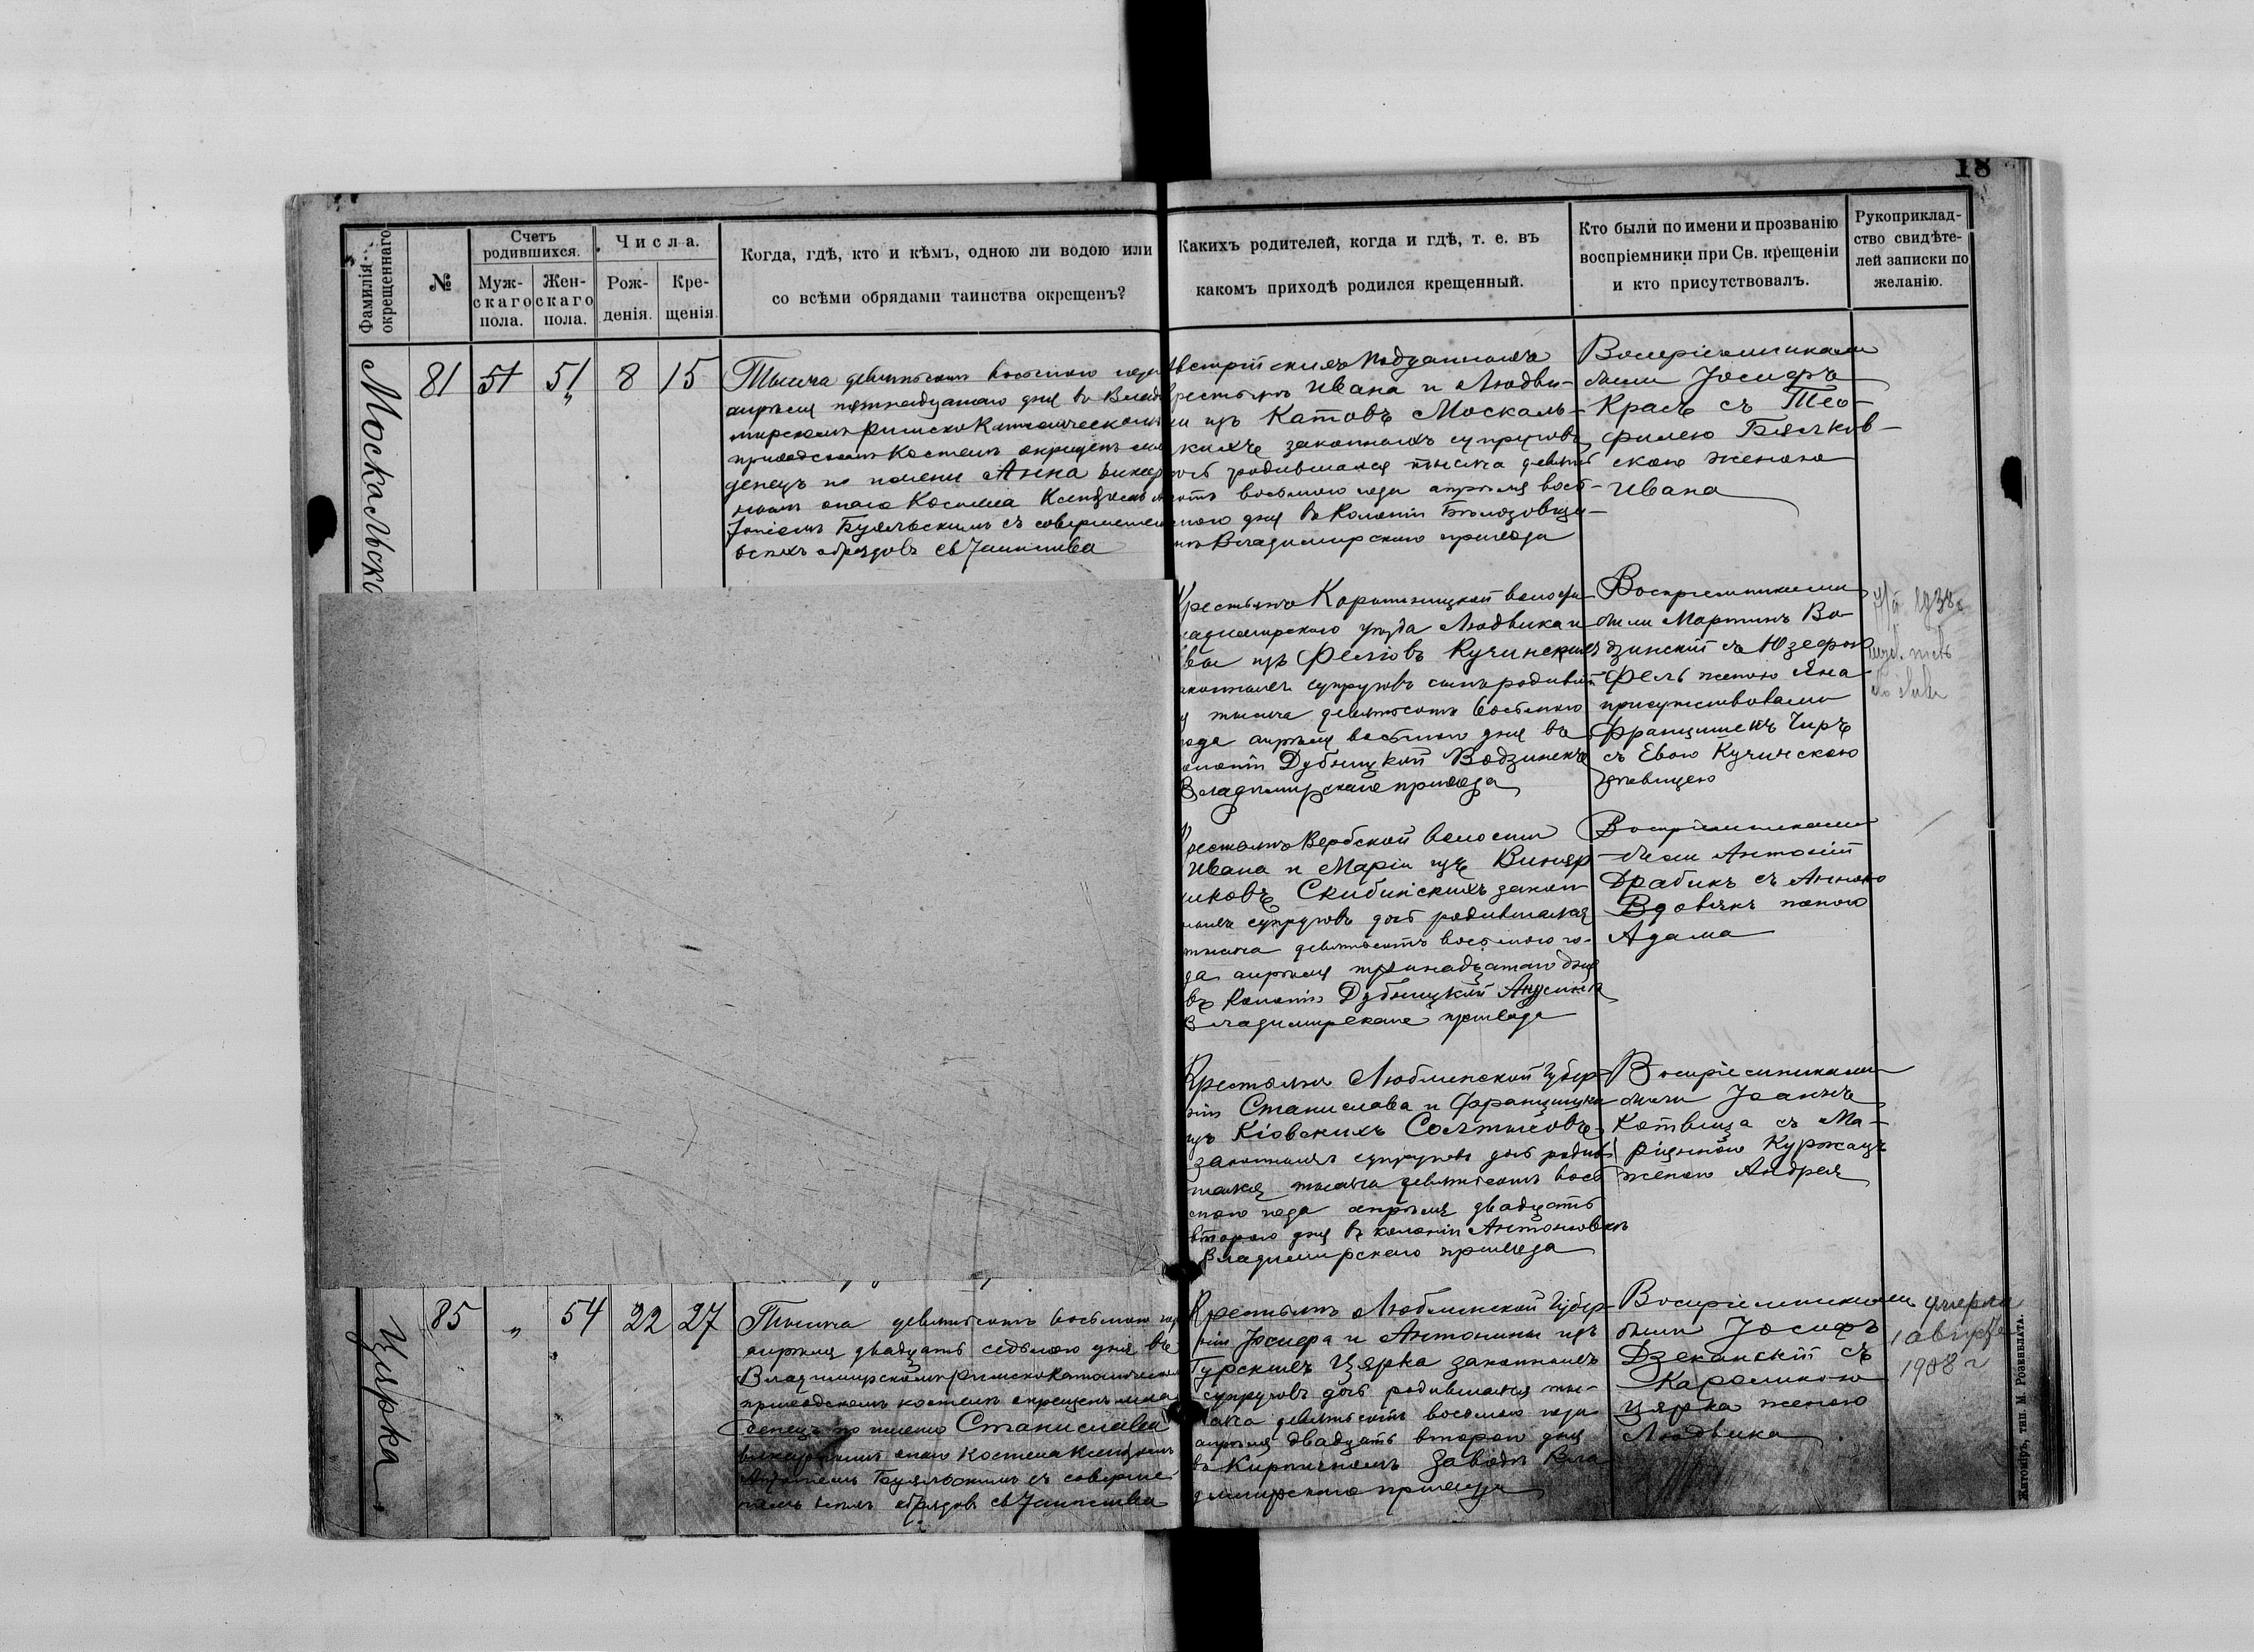 18
Фамилія окрещеннаго
№
Счетъ родившихся.
Муж-
скаго
пола.
Жен-
скаго
пола.
Числа.
Рож-
денія.
Кре-
щенія.
Когда, гдѣ, кто и кѣмъ, одною ли водою или
со всѣми обрядами таинства окрещенъ?
Какихъ родителей, когда и гдѣ, т. е. въ
какомъ приходѣ родился крещенный.
Кто были по имени и прозванію
воспріемники при Св. крещеніи
и кто присутствовалъ.
Рукоприклад-
ство свидѣте-
лей записки по
желанію.
Москальска
81 51 51 8 15
Тысяча девятьсотъ восьмого года
апрѣля пятнадцатаго дня во Влади
мирскомъ римско Католическомъ
приходскомъ костелѣ окрещенъ мла
денецъ по имени Анна викар
нымъ онаго Костела Ксендзомъ
Буяльскимъ съ совершен
всѣхъ обрядовъ св Таинства
Австрійскихъ подданныхъ
крестьянъ Ивана и Людви-
ки изъ Катовъ Москаль-
скихъ законныхъ супруговъ
дочь родившаяся тысяча девять
сотъ восьмого года апрѣля вось-
мого дня въ Колоніи
Владимирскаго прихода
Воспріемниками
были Іосифъ
Красъ съ Тео-
филею Бялков-
скою женою
Ивана
Крестьянъ волости
Владимирскаго уѣзда Людвика и
Евы изъ Фелювъ Кучинскихъ
законныхъ супруговъ сынъ родивш
тысяча девятьсотъ восьмого
года апрѣля восьмого дня въ
колоніи Дубницкой Водзинекъ
Владимирскаго прихода
Воспріемниками
были Мартинъ Во-
дзинскій съ Юзефою
Фель женою Яна
присутствовали
Францишекъ Чиръ
съ Евою Кучинскою
дѣвицею
Крестьянъ Вербской волости
Ивана и Маріи изъ Виняр
чиковъ Скибинскихъ закон
ныхъ супруговъ дочь родившаяся
тысяча девятьсотъ восьмого го-
да апрѣля тринадцатаго дня
въ Колоніи Дубницкой
Владимирскаго прихода
Воспріемниками
были Антоній
Драбикъ съ Анною
Вдовякъ женою
Адама
Крестьянъ Люблинской Губер-
ніи Станислава и Францишки
изъ Кіовскихъ Солтысовъ
законныхъ супруговъ дочь родив
шаяся тысяча девятьсотъ вось
мого года апрѣля двадцать
второго дня въ колоніи Антоновкѣ
Владимирскаго прихода
Воспріемниками
были Іоаннъ
Котвица съ Ма-
ріанною Куржацъ
женою Андрея
Цярка
85 „ 54 22 27
Тысяча девятьсотъ восьмого год
апрѣля двадцать седьмого дня въ
Владимирскомъ римско Католическом
приходскомъ костелѣ окрещенъ мла
денецъ по имени Станислава
викарнымъ онаго Костела Ксендзомъ
Антоніемъ Буяльскимъ съ соверше
ніемъ всѣхъ обрядовъ св Таинства
Крестьянъ Люблинской Губер-
ніи Іосифа и Антонины изъ
Гурскихъ Цярка законныхъ
супруговъ дочь родившаяся ты-
сяча девятьсотъ восьмого года
апрѣля двадцать второго дня
въ Кирпичномъ Заводѣ Вла
димирскаго прихода
Воспріемниками
были Іосифъ
Дзеканскій съ
Каролиною
Цярка женою
Людвика
умерла
1 августа
1908 г
Житоміръ, тип. М. Розенблата.